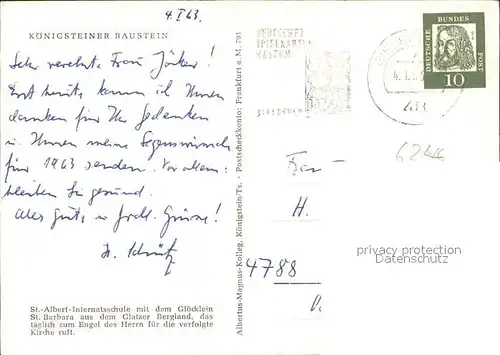 4.I.63.
KÖNIGSTEINER BAUSTEIN
Sehr verehrte Frau
Erst heute kann ich Ihnen
danken für Ihr Gedenken
u. Ihnen meine Segenswünsche
für 1963 senden. Vor allem:
bleiben Sie gesund.
Alles Gute u. herzl. Grüsse!
St.-Albert-Internatsschule mit dem Glöcklein
St. Barbara aus dem Glatzer Bergland, das
täglich zum Engel des Herrn für die verfolgte
Kirche ruft.
Albertus-Magnus-Kolleg, Königstein/Ts. · Postscheckkonto: Frankfurt a. M.
DEUTSCHE BUNDESPOST
10
Frau
H.
4788
privacy protection
Datenschutz